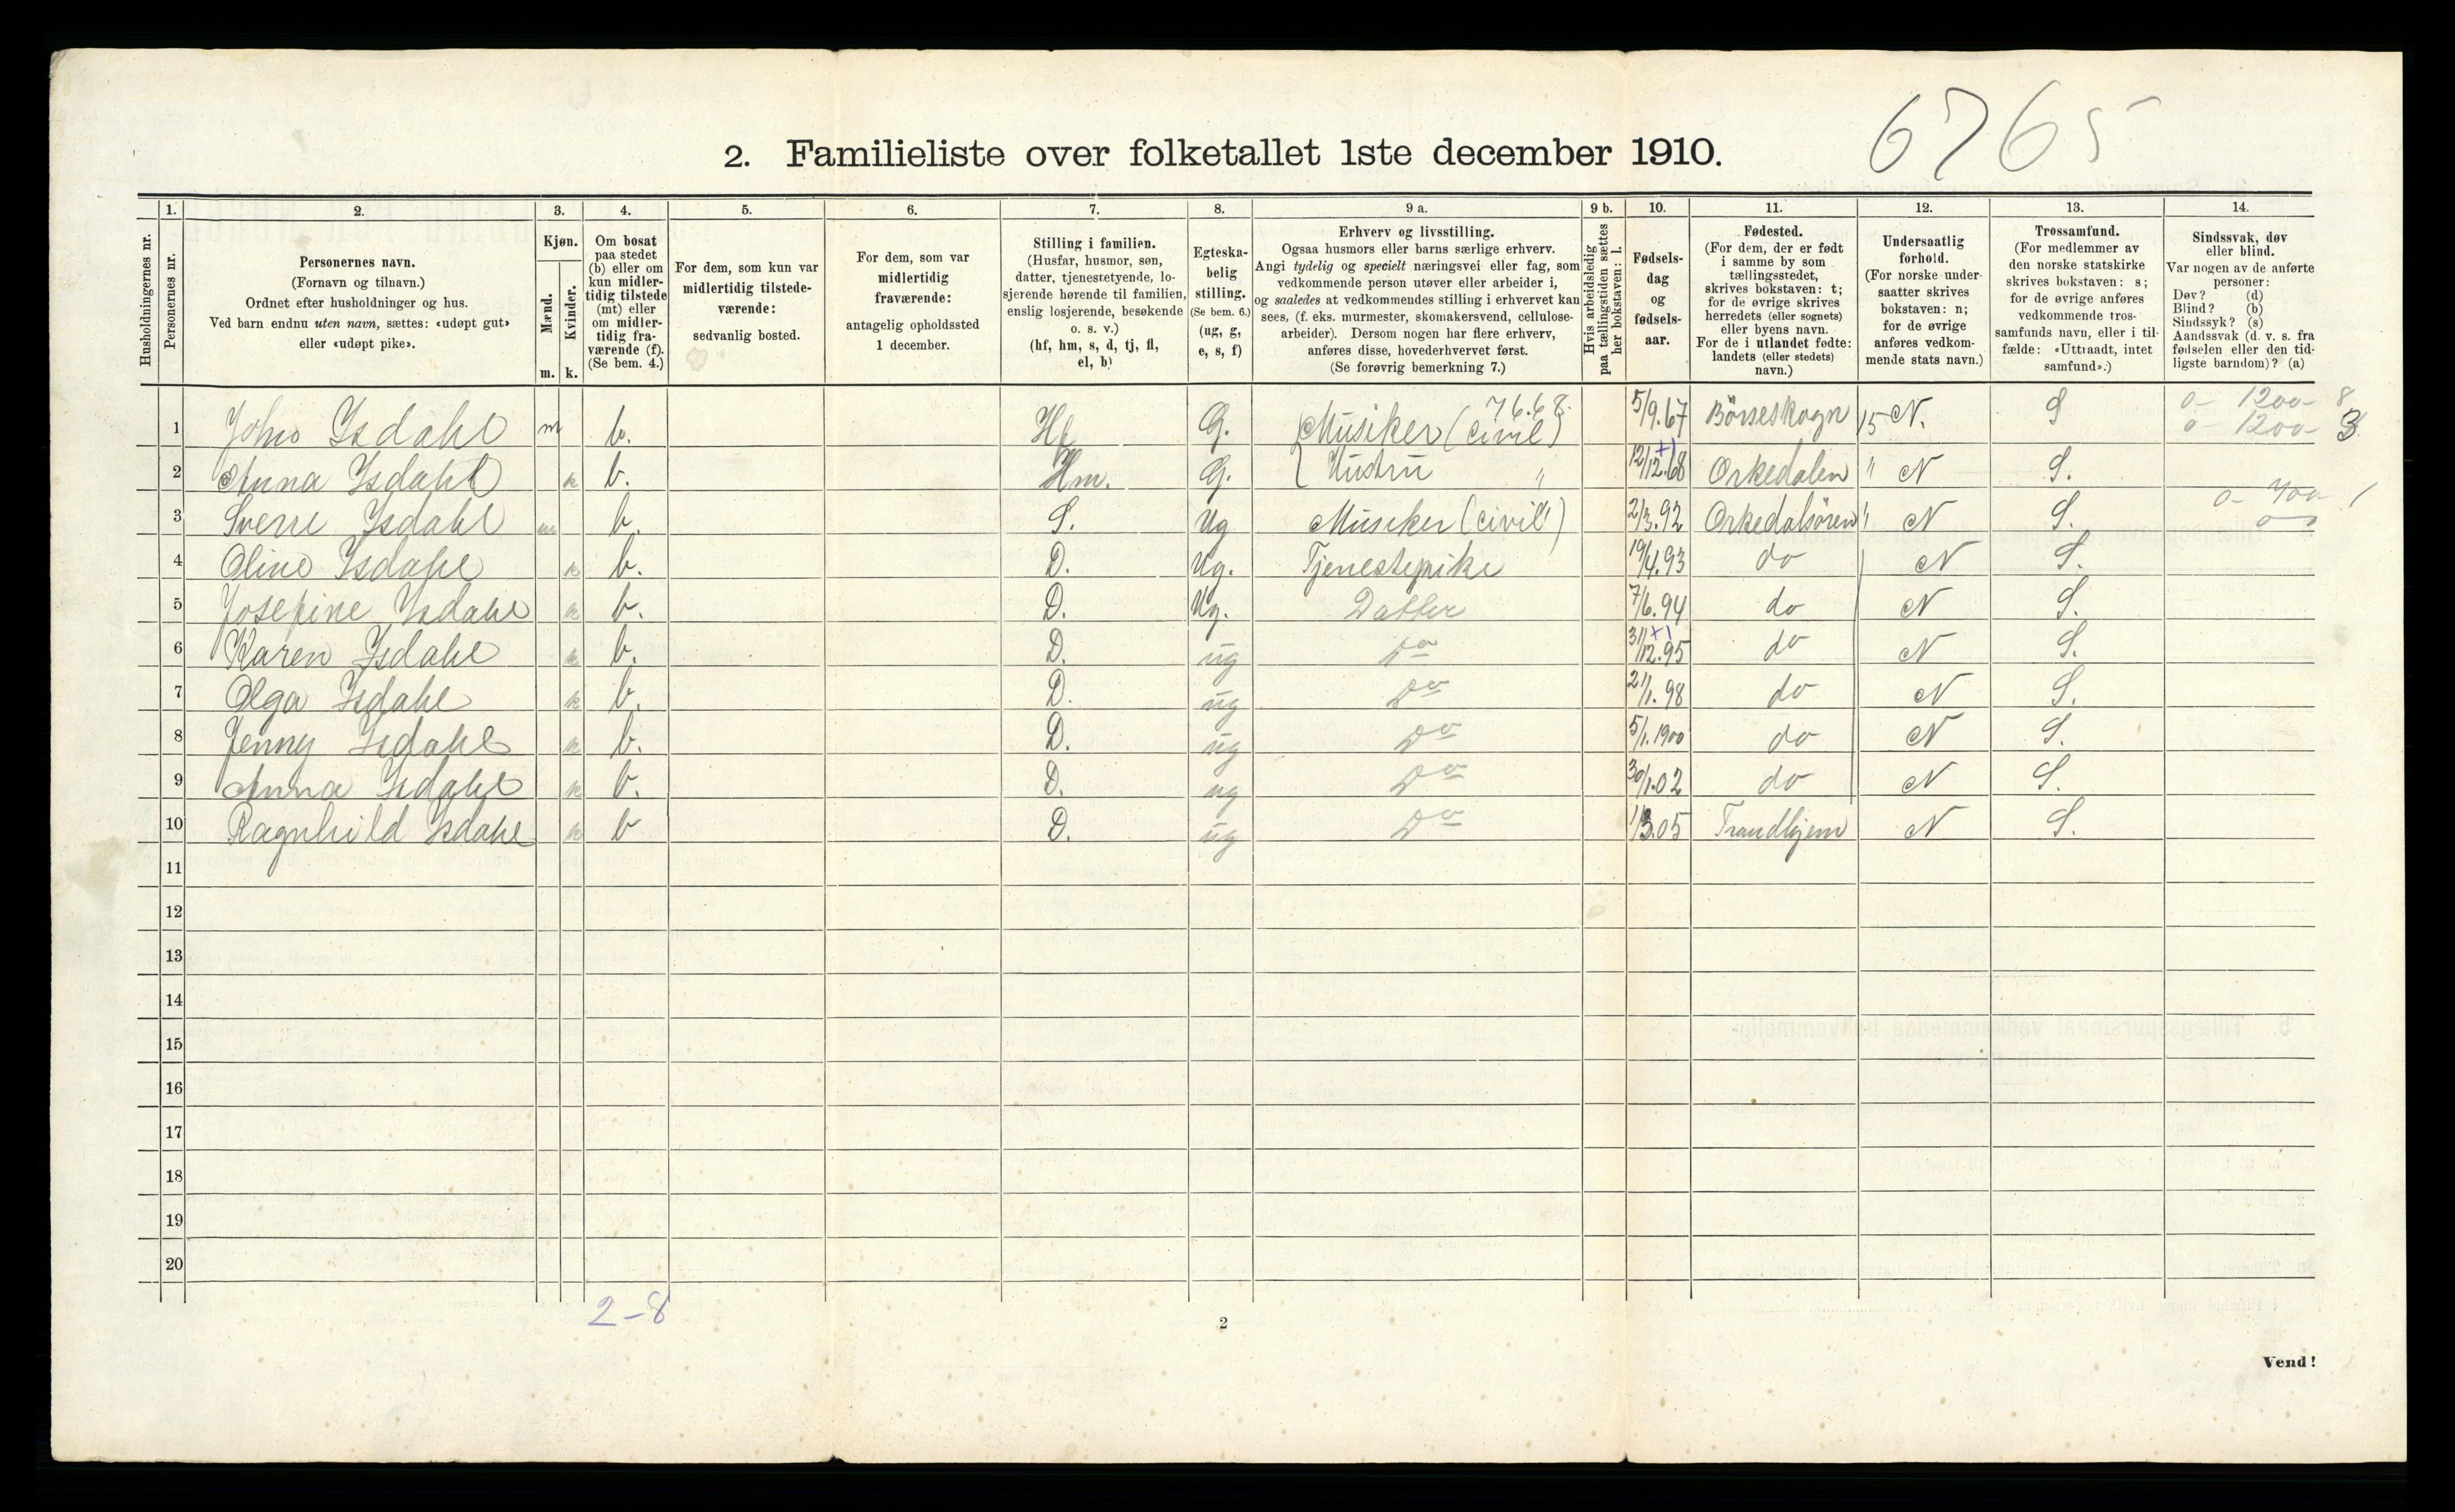 6765
2. Familieliste over folketallet 1ste december 1910.
Husholdningernes nr.
1. Personernes nr.
2. Personernes navn. (Fornavn og tilnavn.) Ordnet efter husholdninger og hus. Ved barn endnu uten navn, sættes: «udøpt gut» eller «udøpt pike».
3. Kjøn. Mænd. m. Kvinder. k.
4. Om bosat paa stedet (b) eller om kun midlertidig tilstede (mt) eller om midlertidig fraværende (f). (Se bem. 4.)
5. For dem, som kun var midlertidig tilstedeværende: sedvanlig bosted.
6. For dem, som var midlertidig fraværende: antagelig opholdssted 1 december.
7. Stilling i familien. (Husfar, husmor, søn, datter, tjenestetyende, losjerende hørende til familien, enslig losjerende, besøkende o. s. v.) (hf, hm, s, d, tj, fl, el, b)
8. Egteskabelig stilling. (Se bem. 6.) (ug, g, e, s, f)
9 a. Erhverv og livsstilling. Ogsaa husmors eller barns særlige erhverv. Angi tydelig og specielt næringsvei eller fag, som vedkommende person utøver eller arbeider i, og saaledes at vedkommendes stilling i erhvervet kan sees, (f. eks. murmester, skomakersvend, cellulosearbeider). Dersom nogen har flere erhverv, anføres disse, hovederhvervet først. (Se forøvrig bemerkning 7.)
9 b. Hvis arbeidsledig paa tællingstiden sættes her bokstaven: l.
10. Fødselsdag og fødselsaar.
11. Fødested. (For dem, der er født i samme by som tællingsstedet, skrives bokstaven: t; for de øvrige skrives herredets (eller sognets) eller byens navn. For de i utlandet fødte: landets (eller stedets) navn.)
12. Undersaatlig forhold. (For norske undersaatter skrives bokstaven: n; for de øvrige anføres vedkommende stats navn.)
13. Trossamfund. (For medlemmer av den norske statskirke skrives bokstaven: s; for de øvrige anføres vedkommende trossamfunds navn, eller i tilfælde: «Uttraadt, intet samfund».)
14. Sindssvak, døv eller blind. Var nogen av de anførte personer: Døv? (d) Blind? (b) Sindssyk? (s) Aandssvak (d. v. s. fra fødselen eller den tidligste barndom)? (a)
76.68. 0 - 1200 - 8
1 John Isdahl m b. Hf G. Musiker (civil) 5/9.67 Börseskogn 15 N. S 0 - 1200 - 3
2 Anna Isdahl k b. Hm. G. Hustru " 12/12.68 Orkedalen " N S.
0 - 400 1
3 Sverre Isdahl m b. S. Ug Musiker (civil) 2/3.92 Orkedalsören " N S.
4 Oline Isdahl k b. D. Ug. Tjenestepike 19/4.93 do N S.
5 Josefine Isdahl k b. D. Ug. Datter 7/6.94 do N S.
6 Karen Isdahl k b. D. ug Do 31/12.95 do N S.
7 Olga Isdahl k b. D. ug Do 21/1.98 do N S.
8 Jenny Isdahl k b. D. ug Do 5/1.1900 do N S.
9 Anna Isdahl k b. D. ug Do 30/1.02 do N S.
10 Ragnhild Isdahl k b D. ug Do 1/3.05 Trondhjem N S.
11
12
13
14
15
16
17
18
19
20
2-8
2
Vend!